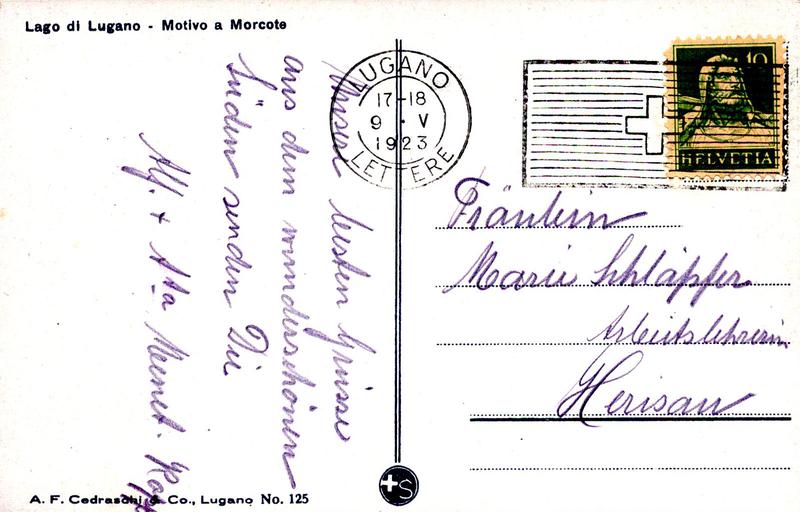 Lago di Lugano - Motivo a Morcote
Unsere besten Grüsse
aus dem wunderschönen
Süden senden Dir
Alf. +
LUGANO
17-18
9 · V
1923
LETTERE
10
HELVETIA
Fräulein
Marie Schläpfer
Arbeitslehrerin
Herisau
+S
A. F. Cedraschi & Co., Lugano No. 125